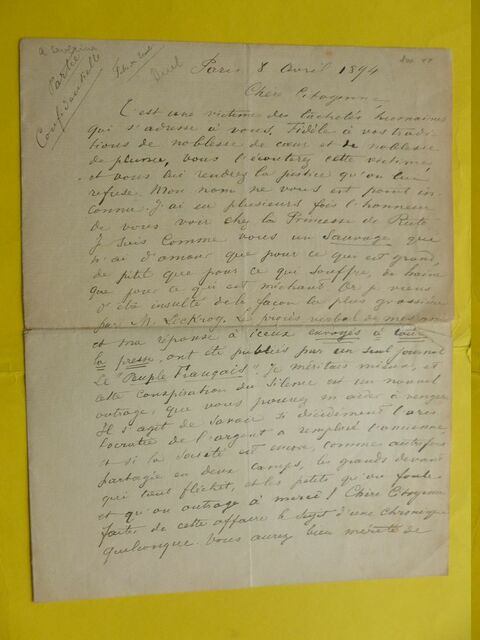 a Severine
Partie
Confidentielle
Duel
Paris 8 Avril 1894
Chère Citoyenne,
C'est une victime des lâchetés humaines
qui s'adresse à vous. Fidèle à vos tradi
tions de noblesse de cœur et de noblesse
de plume, vous l'écouterez cette victime
et vous lui rendrez la justice qu'on lui
refuse. Mon nom ne vous est point in
connu. J'ai eu plusieurs fois l'honneur
de vous voir chez la Princesse de Rute
Je suis comme vous un Sauvage, que
n'ai d'amour que pour ce qui est grand,
de pitié que pour ce qui souffre, de haine
que pour ce qui est méchant. Or je viens
d'être insulté de la façon la plus grossière
par M. Lockroy. Le procès verbal de mes
et ma réponse à iceux envoyés à toute
la presse, ont été publiés par un seul journal
Le "Peuple Français". Je méritais mieux, et
cette conspiration du silence est un nouvel
outrage, que vous pouvez m'aider à venger.
Il s'agit de savoir si décidément l'aris
tocratie de l'argent a remplacé l'ancienne,
et si la société est encore, comme autrefois
partagée en deux camps, les grands devant
qui tout fléchit, et les petits qu'on foule
et qu'on outrage à merci! Chère Citoyenne
faites de cette affaire le sujet d'une chronique
quelconque. Vous aurez bien mérité de